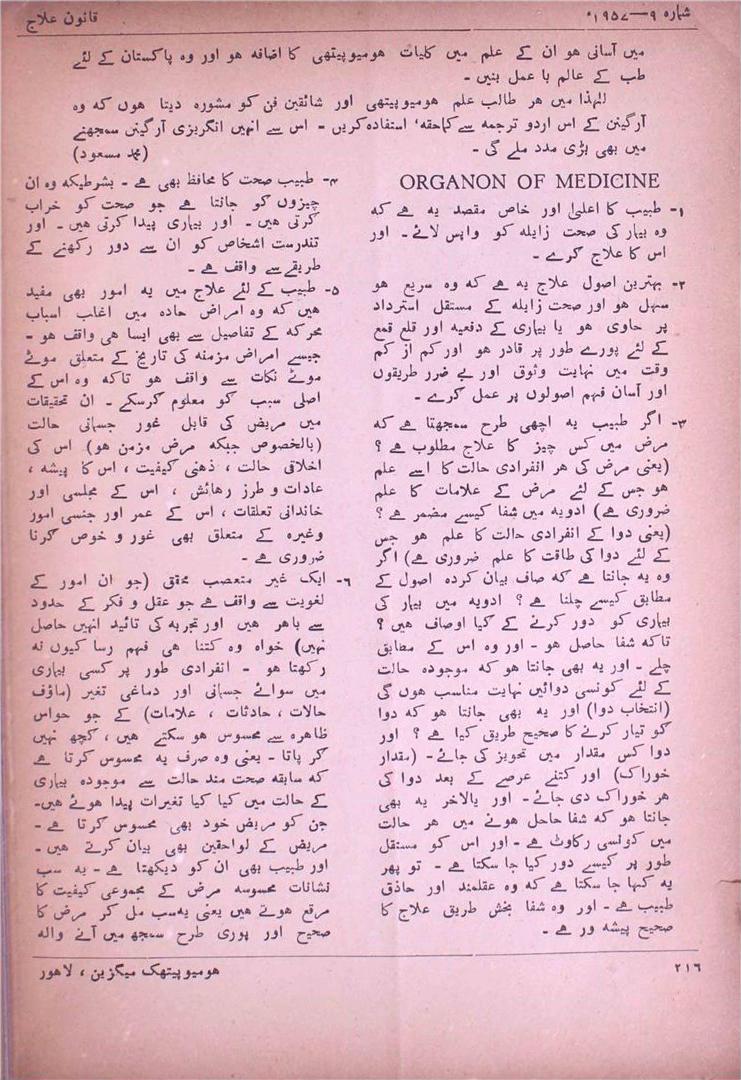 شمارہ ۹—۱۹۵۷ء
قانون علاج
میں آسانی ہو ان کے علم میں کلیات ہومیوپیتھی کا اضافہ ہو اور وہ پاکستان کے لئے
طب کے عالم با عمل بنیں -
لہٰذا میں ہر طالب علم ہومیوپیتھی اور شائقین فن کو مشورہ دیتا ہوں کہ وہ
آرگینن کے اس اردو ترجمہ سے کماحقہ، استفادہ کریں - اس سے انہیں انگریزی آرگینن سمجھنے
میں بھی بڑی مدد ملے گی - (محمد مسعود)
ORGANON OF MEDICINE
۱- طبیب کا اعلیٰ اور خاص مقصد یہ ہے کہ
وہ بیمار کی صحت زایلہ کو واپس لائے - اور
اس کا علاج کرے -
۲- بہترین اصول علاج یہ ہے کہ وہ سریع ہو
سہل ہو اور صحت زایلہ کے مستقل استرداد
پر حاوی ہو یا بیماری کے دفعیہ اور قلع قمع
کے لئے پورے طور پر قادر ہو اور کم از کم
وقت میں نہایت وثوق اور بے ضرر طریقوں
اور آسان فہم اصولوں پر عمل کرے -
۳- اگر طبیب یہ اچھی طرح سمجھتا ہے کہ
مرض میں کس چیز کا علاج مطلوب ہے ؟
(یعنی مرض کی ہر انفرادی حالت کا اسے علم
ہو جس کے لئے مرض کے علامات کا علم
ضروری ہے) ادویہ میں شفا کیسے مضمر ہے ؟
(یعنی دوا کے انفرادی حالت کا علم ہو جس
کے لئے دوا کی طاقت کا علم ضروری ہے) اگر
وہ یہ جانتا ہے کہ صاف بیان کردہ اصول کے
مطابق کیسے چلنا ہے ؟ ادویہ میں بیمار کی
بیماری کو دور کرنے کے کیا اوصاف ہیں ؟
تاکہ شفا حاصل ہو - اور وہ اس کے مطابق
چلے - اور یہ بھی جانتا ہو کہ موجودہ حالت
کے لئے کونسی دوائیں نہایت مناسب ہوں گی
(انتخاب دوا) اور یہ بھی جانتا ہو کہ دوا
کو تیار کرنے کا صحیح طریق کیا ہے ؟ اور
دوا کس مقدار میں تجویز کی جائے - (مقدار
خوراک) اور کتنے عرصے کے بعد دوا کی
ہر خوراک دی جائے - اور بالاخر یہ بھی
جانتا ہو کہ شفا حاحل ہونے میں ہر حالت
میں کونسی رکاوٹ ہے - اور اس کو مستقل
طور پر کیسے دور کیا جا سکتا ہے - تو پھر
یہ کہا جا سکتا ہے کہ وہ عقلمند اور حاذق
طبیب ہے - اور وہ شفا بخش طریق علاج کا
صحیح پیشہ ور ہے -
۴- طبیب صحت کا محافظ بھی ہے - بشرطیکہ وہ ان
چیزوں کو جانتا ہے جو صحت کو خراب
کرتی ہیں - اور بیماری پیدا کرتی ہیں - اور
تندرست اشخاص کو ان سے دور رکھنے کے
طریقے سے واقف ہے -
۵- طبیب کے لئے علاج میں یہ امور بھی مفید
ہیں کہ وہ امراض حادہ میں اغلب اسباب
محرکہ کے تفاصیل سے بھی ایسا ہی واقف ہو -
جیسے امراض مزمنہ کی تاریخ کے متعلق موٹے
موٹے نکات سے واقف ہو تاکہ وہ اس کے
اصلی سبب کو معلوم کرسکے - ان تحقیقات
میں مریض کی قابل غور جسمانی حالت
(بالخصوص جبکہ مرض مزمن ہو) اس کی
اخلاقی حالت ، ذہنی کیفیت ، اس کا پیشہ ،
عادات و طرز رہائش ، اس کے مجلسی اور
خاندانی تعلقات ، اس کے عمر اور جنسی امور
وغیرہ کے متعلق بھی غور و خوص کرنا
ضروری ہے -
۶- ایک غیر متعصب محقق (جو ان امور کے
لغویت سے واقف ہے جو عقل و فکر کے حدود
سے باہر ہیں اور تجربہ کی تائید انہیں حاصل
نہیں) خواہ وہ کتنا ہی فہم رسا کیوں نہ
رکھتا ہو - انفرادی طور پر کسی بیماری
میں سوائے جسمانی اور دماغی تغیر (ماؤف
حالات ، حادثات ، علامات) کے جو حواس
ظاہرہ سے محسوس ہو سکتے ہیں ، کچھ نہیں
کر پاتا - یعنی وہ صرف یہ محسوس کرتا ہے
کہ سابقہ صحت مند حالت سے موجودہ بیماری
کے حالت میں کیا کیا تغیرات پیدا ہوئے ہیں-
جن کو مریض خود بھی محسوس کرتا ہے -
مریض کے لواحقین بھی بیان کرتے ہیں -
اور طبیب بھی ان کو دیکھتا ہے - یہ سب
نشانات محسوسہ مرض کے مجموعی کیفیت کا
مرقع ہوتے ہیں یعنی یہ سب مل کر مرض کا
صحیح اور پوری طرح سمجھ میں آنے والہ
۲۱۶
ہومیوپیتھک میگزین ، لاہور